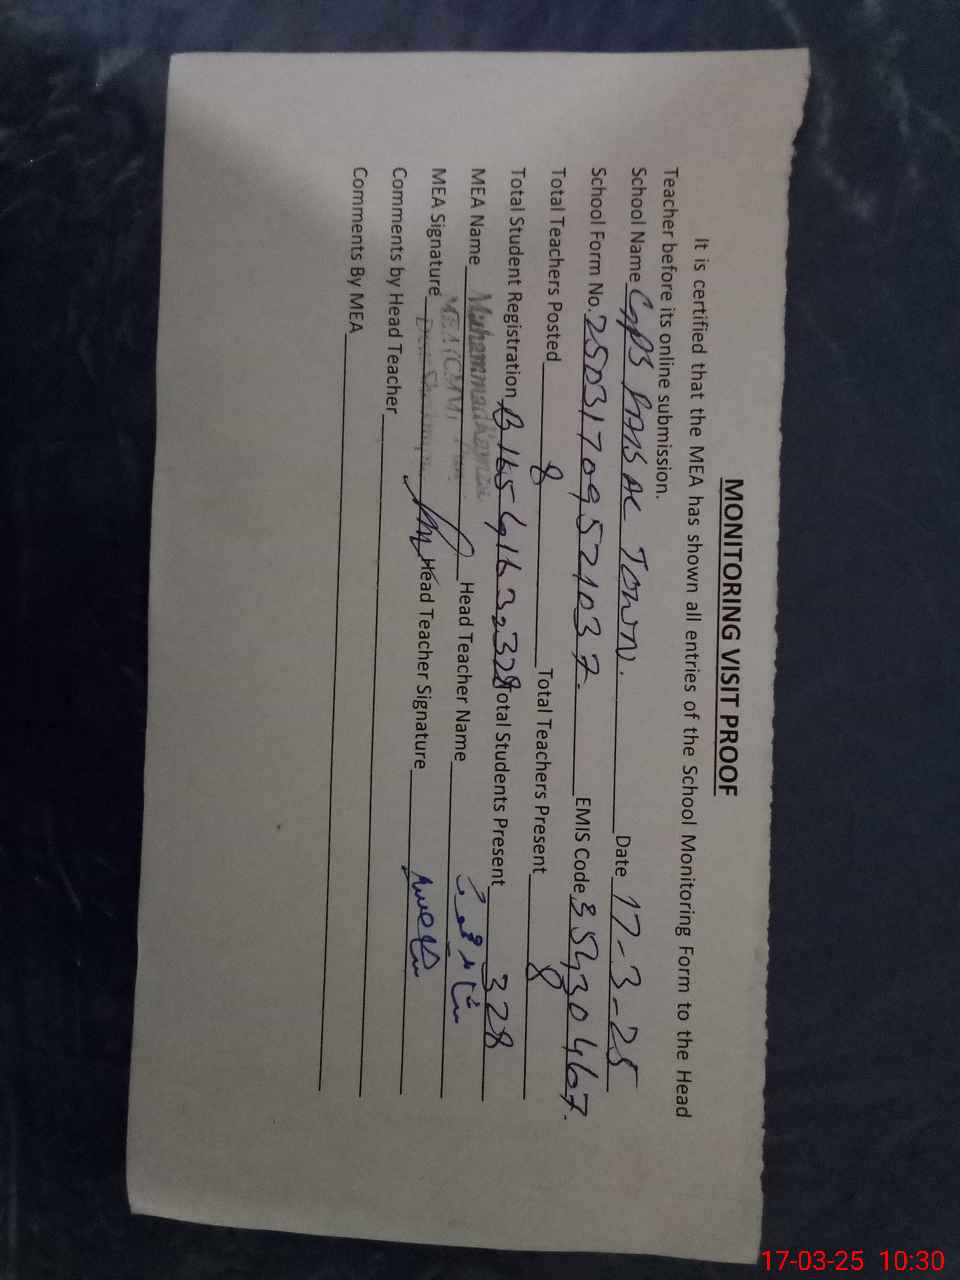 MONITORING VISIT PROOF
It is certified that the MEA has shown all entries of the School Monitoring Form to the Head
Teacher before its online submission.
School Name GPS PASAC TOWN. Date 17-3-25
School Form No. 250317095521037. EMIS Code 35430467.
Total Teachers Posted 8 Total Teachers Present 8
Total Student Registration B 165 G 163, 328 Total Students Present 328
MEA Name Muhammad Head Teacher Name
MEA Signature Head Teacher Signature
Comments by Head Teacher
Comments By MEA
17-03-25 10:30